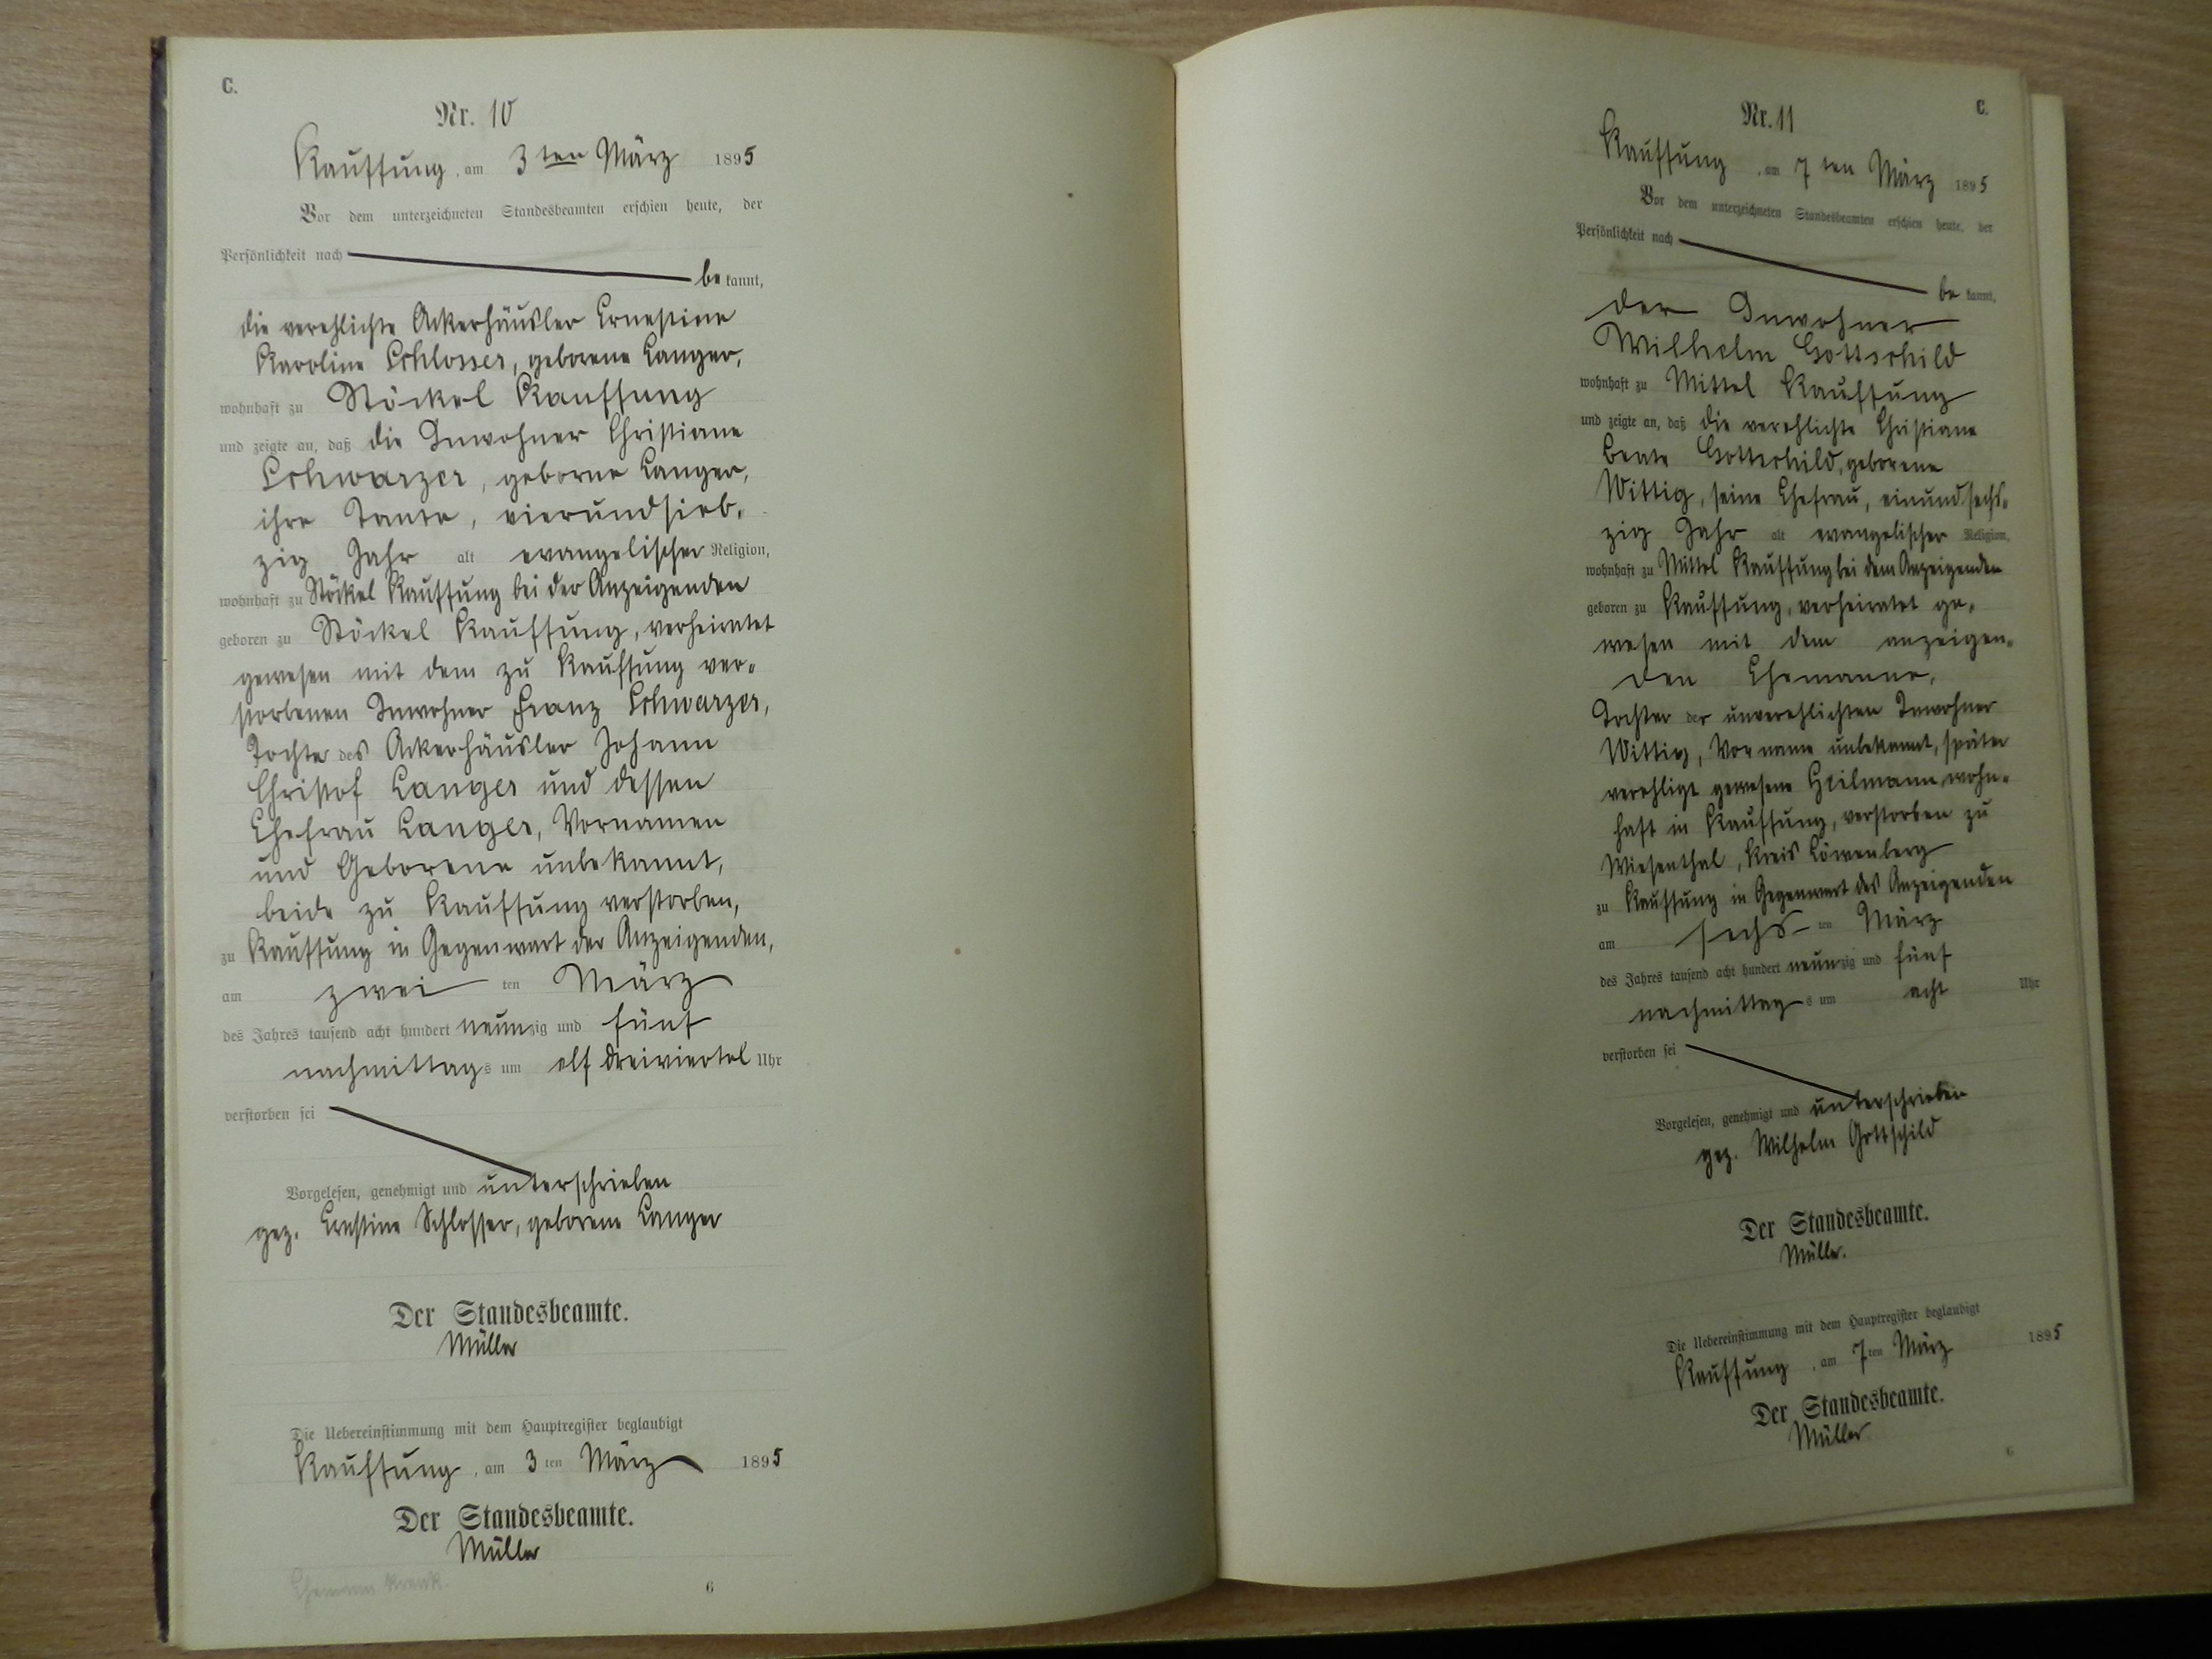 C.
Nr. 10
Kauffung, am 3ten März 1895
Vor dem unterzeichneten Standesbeamten erschien heute, der
Persönlichkeit nach
bekannt,
die verehlichte Ackerhäusler Ernestine
Karoline Schlosser, geborene Langer,
wohnhaft zu Stöckel Kauffung
und zeigte an, daß die Inwohner Christiane
Schwarzer, geborne Langer,
ihre Tante, vierundsieb-
zig Jahr alt evangelischer Religion,
wohnhaft zu Stöckel Kauffung bei der Anzeigenden
geboren zu Stöckel Kauffung, verheiratet
gewesen mit dem zu Kauffung ver-
storbenen Inwohner Franz Schwarzer,
Tochter des Ackerhäusler Johann
Christof Langer und dessen
Ehefrau Langer, Vornamen
und Geborene unbekannt,
beide zu Kauffung verstorben,
zu Kauffung in Gegenwart der Anzeigenden,
am zwei ten März
des Jahres tausend acht hundert neunzig und fünf
nachmittags um elf dreiviertel Uhr
verstorben sei
Vorgelesen, genehmigt und unterschrieben
gez. Ernstine Schlosser, geborene Langer
Der Standesbeamte.
Müller
Die Uebereinstimmung mit dem Hauptregister beglaubigt
Kauffung, am 3ten März 1895
Der Standesbeamte.
Müller
Ehemann krank.
6
Nr. 11
C.
Kauffung, am 7ten März 1895
Vor dem unterzeichneten Standesbeamten erschien heute, der
Persönlichkeit nach
bekannt,
der Inwohner
Wilhelm Gottschild
wohnhaft zu Mittel Kauffung
und zeigte an, daß die verehlichte Christiane
Beate Gottschild, geborene
Wittig, seine Ehefrau, einundsechs-
zig Jahr alt evangelischer Religion,
wohnhaft zu Mittel Kauffung bei dem Anzeigenden
geboren zu Kauffung, verheiratet ge-
wesen mit dem anzeigen-
den Ehemanne,
Tochter der unverehlichten Inwohner
Wittig, Vorname unbekannt, später
verehligt gewesene Heilmann wohn-
haft in Kauffung, verstorben zu
Wiesenthal, Kreis Löwenberg
zu Kauffung in Gegenwart des Anzeigenden
am sechs ten März
des Jahres tausend acht hundert neunzig und fünf
nachmittags um acht Uhr
verstorben sei
Vorgelesen, genehmigt und unterschrieben
gez. Wilhelm Gottschild
Der Standesbeamte.
Müller.
Die Uebereinstimmung mit dem Hauptregister beglaubigt
Kauffung, am 7ten März 1895
Der Standesbeamte.
Müller
6